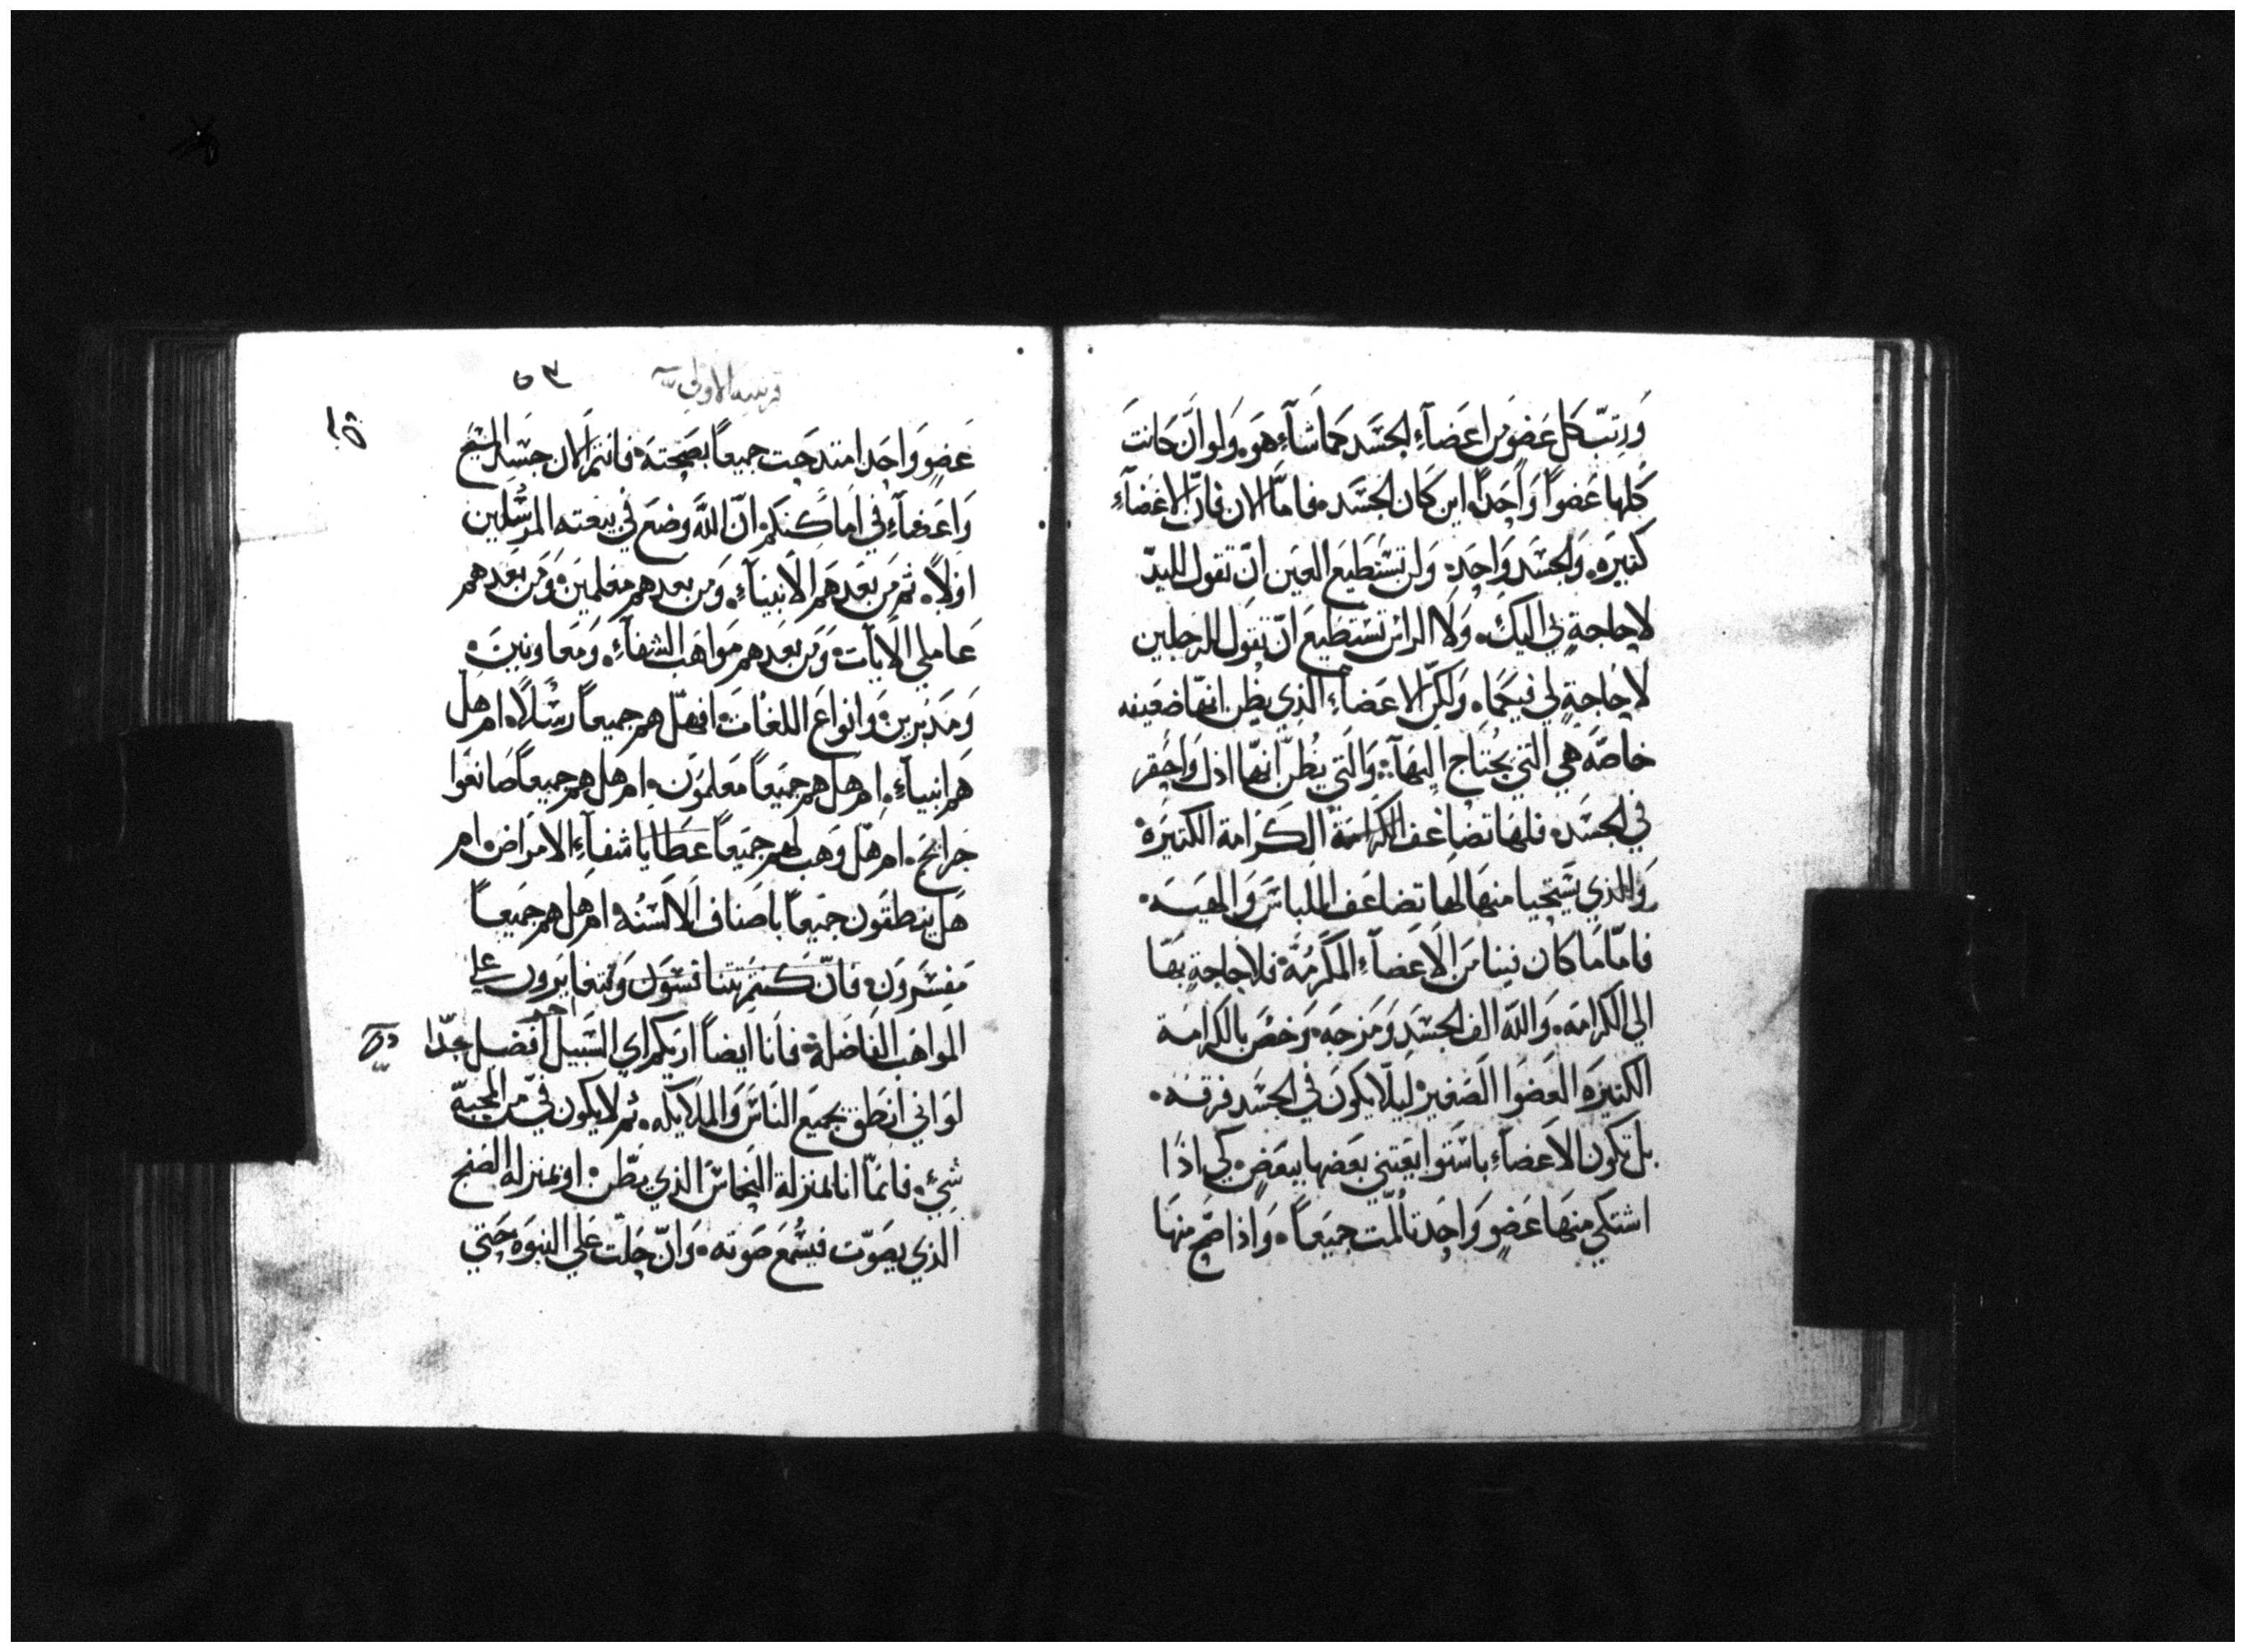 وَرتبّ كل عَضوٍ من اعَضآءِ الجسَد كما شآءِ هَو، وَلو انّ كانتَ
كلها عَضواً وَاحَداً، اين كان الجسَد، فامّا الان فانّ الاعضآءِ
كثيرَه، وَالجسَد وَاحِد، وَلن تسَتطيَع العَين انّ تقول لليدّ
لاحاجةٍ لي اليكِ، وَلا الرائس تستطيَع انّ تقول للرجلين
لاحاجةٍ لي فيكما، وَلكنّ الاعَضاءِ الذي يظن انهّا ضعَيفه
خاصّه هي التي يحُتاج اليهَآ، وَالتي يُظن انهّا اذل وَاحقر
في الجسَد، فلهَا تضاعَف الكرامَة الكَرَامة الكثيرَة
وَالذي يسَتحيا منهَا لهَا تضاعَف اللباسَ وَالهيبَه،
فامّا مَا كان فينا مَن الاَعَضآءِ المكَرمُة، فلاحاجةٍ بهَا
الي الكرامَه، وَالله الف الجسَدِ وَمزجَه، وَخصَ بالكرامَة
الكثيرَه العَضوَا الصَغير، ليلا يكونَ في الجسَد فرقه،
بل تكون الاَعضآءِ باسَتوا يعَتني بعَضها ببعَضٍ، كي اذا
اشتكي منهَا عَضوٍ وَاحَد تالمّت جميَعاً، وَاذا صَح منهَا
قرنتيه الاولي
٥٣
عَضوٍ وَاحَد امتدحَت جميعاً بصَحتهَ، فانتم الان جسَد المسَيح
وَاعَضآءِ في امَاكنكم، انّ الله وضعَ في بيعَته المرسُلين
اوْلاً، ثم مَن بعَدهَم الانَبيآءِ، وَمن بعدهم مَعلمينَ، وَمن بعَدهم
عَاملي الاَيآت، وَمن بعَدهم مَواهَب الشفآءِ، وَمَعاونينَ،
وَمَدبرين، وَانواعَ اللغَات، افهلّ هم جميعاً رسُلاً، ام هل
هَم انبيآءِ، ام هل هم جميَعاً مَعلمَون، ام هَل هم جميعاً صَانعَوا
جرَايحَ، ام هلّ وَهب لهم جميَعاً عَطايا شفآءِ الامرَاض، ام
هَل ينطقون جميَعاً باصَناف الاَلسَنُه، ام هل هم جميَعاً
مَفسَرون، فانّ كنتم تتنافسَون وَتتغايرَون علي
المَواهَب الفاضَلة، فانا ايضاً اريكم اي السَبيل افضَل جدّا
لوَ اني انطق بجميَع الناسَ وَالملايكه، ثم لايكون فيّ من المحبّه
شيءٍ، فانمّا انا بمنزلة النحاسَ الذي يطّن، او بمنزله الصنج
الذي يصَوّت فيسُمعَ صَوته، وَانّ حَلت علي النبوه حَتي